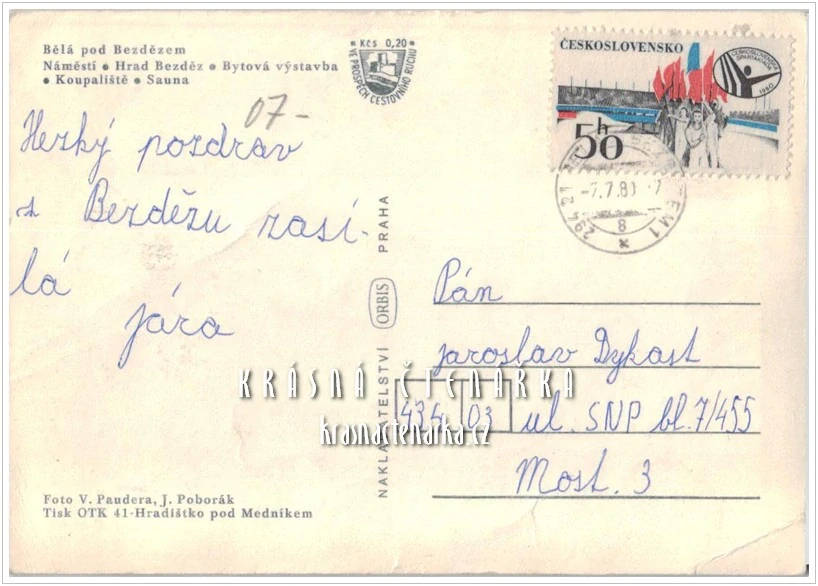 Bělá pod Bezdězem
Náměstí • Hrad Bezděz • Bytová výstavba
• Koupaliště • Sauna
* Kčs 0,20 *
VE PROSPĚCH CESTOVNÍHO RUCHU
ČESKOSLOVENSKO
ČESKOSLOVENSKÁ SPARTAKIÁDA 1980
50 h
294 21
-7.7.80 -7
8
EM 1 *
07-
Hezký pozdrav
z Bezdězu zasí-
lá
jára
NAKLADATELSTVÍ ORBIS PRAHA
Pán
jaroslav Dykast
434 03 ul. SNP bl. 7/455
Most. 3
KRÁSNÁ ČTENÁŘKA
krasnactenarka.cz
Foto V. Paudera, J. Poborák
Tisk OTK 41-Hradištko pod Medníkem